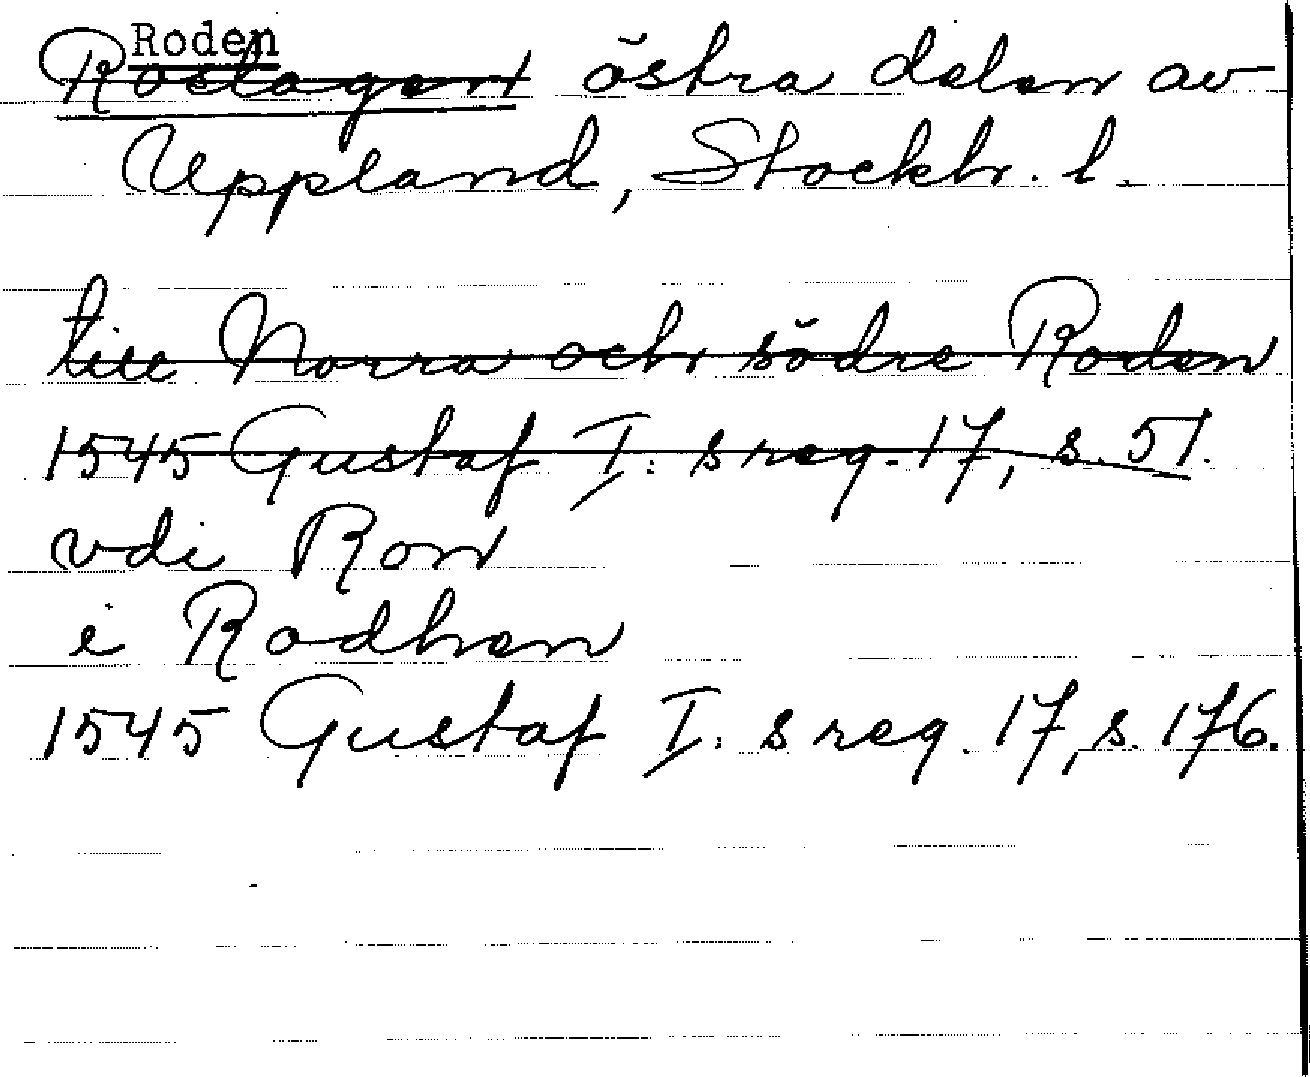 Roden
Roslagen östra delen av
Uppland, Stockh. l.
till Norra och södre Roden
1545 Gustaf I: s reg. 17, s. 51.
vdi Ron
i Rodhen
1545 Gustaf I: s reg. 17, s. 176.